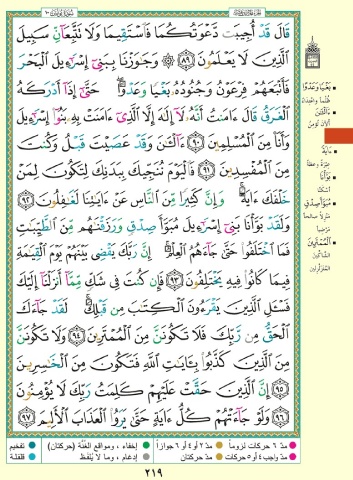 قَالَ قَدْ أُجِيبَت دَّعْوَتُكُمَا فَٱسْتَقِيمَا وَلَا تَتَّبِعَآنِّ سَبِيلَ
ٱلَّذِينَ لَا يَعْلَمُونَ ٨٩ ۞ وَجَٰوَزْنَا بِبَنِىٓ إِسْرَٰٓءِيلَ ٱلْبَحْرَ
فَأَتْبَعَهُمْ فِرْعَوْنُ وَجُنُودُهُۥ بَغْيًا وَعَدْوًا ۖ حَتَّىٰٓ إِذَآ أَدْرَكَهُ
ٱلْغَرَقُ قَالَ ءَامَنتُ أَنَّهُۥ لَآ إِلَٰهَ إِلَّا ٱلَّذِىٓ ءَامَنَتْ بِهِۦ بَنُوٓا۟ إِسْرَٰٓءِيلَ
وَأَنَا۠ مِنَ ٱلْمُسْلِمِينَ ٩٠ ءَآلْـَٰٔنَ وَقَدْ عَصَيْتَ قَبْلُ وَكُنتَ
مِنَ ٱلْمُفْسِدِينَ ٩١ فَٱلْيَوْمَ نُنَجِّيكَ بِبَدَنِكَ لِتَكُونَ لِمَنْ
خَلْفَكَ ءَايَةً ۚ وَإِنَّ كَثِيرًا مِّنَ ٱلنَّاسِ عَنْ ءَايَٰتِنَا لَغَٰفِلُونَ ٩٢
وَلَقَدْ بَوَّأْنَا بَنِىٓ إِسْرَٰٓءِيلَ مُبَوَّأَ صِدْقٍ وَرَزَقْنَٰهُم مِّنَ ٱلطَّيِّبَٰتِ
فَمَا ٱخْتَلَفُوا۟ حَتَّىٰ جَآءَهُمُ ٱلْعِلْمُ ۚ إِنَّ رَبَّكَ يَقْضِى بَيْنَهُمْ يَوْمَ ٱلْقِيَٰمَةِ
فِيمَا كَانُوا۟ فِيهِ يَخْتَلِفُونَ ٩٣ فَإِن كُنتَ فِى شَكٍّ مِّمَّآ أَنزَلْنَآ إِلَيْكَ
فَسْـَٔلِ ٱلَّذِينَ يَقْرَءُونَ ٱلْكِتَٰبَ مِن قَبْلِكَ ۚ لَقَدْ جَآءَكَ
ٱلْحَقُّ مِن رَّبِّكَ فَلَا تَكُونَنَّ مِنَ ٱلْمُمْتَرِينَ ٩٤ وَلَا تَكُونَنَّ
مِنَ ٱلَّذِينَ كَذَّبُوا۟ بِـَٔايَٰتِ ٱللَّهِ فَتَكُونَ مِنَ ٱلْخَٰسِرِينَ
٩٥ إِنَّ ٱلَّذِينَ حَقَّتْ عَلَيْهِمْ كَلِمَتُ رَبِّكَ لَا يُؤْمِنُونَ
٩٦ وَلَوْ جَآءَتْهُمْ كُلُّ ءَايَةٍ حَتَّىٰ يَرَوُا۟ ٱلْعَذَابَ ٱلْأَلِيمَ ٩٧
بَغْيًا وَعَدْوًا
ءَآلْـَٰٔنَ
ءَايَةً
بَوَّأْنَا
مُبَوَّأَ صِدْقٍ
ٱلْمُمْتَرِينَ
مدّ ٦ حركات لزوماً
مدّ ٢ أو ٤ أو ٦ جوازاً
إخفاء ، ومواقع الغُنَّة (حركتان)
تفخيم
مدّ واجب ٤ أو ٥ حركات
مدّ حركتان
إدغام ، وما لا يُلفَظ
قلقلة
٢١٩